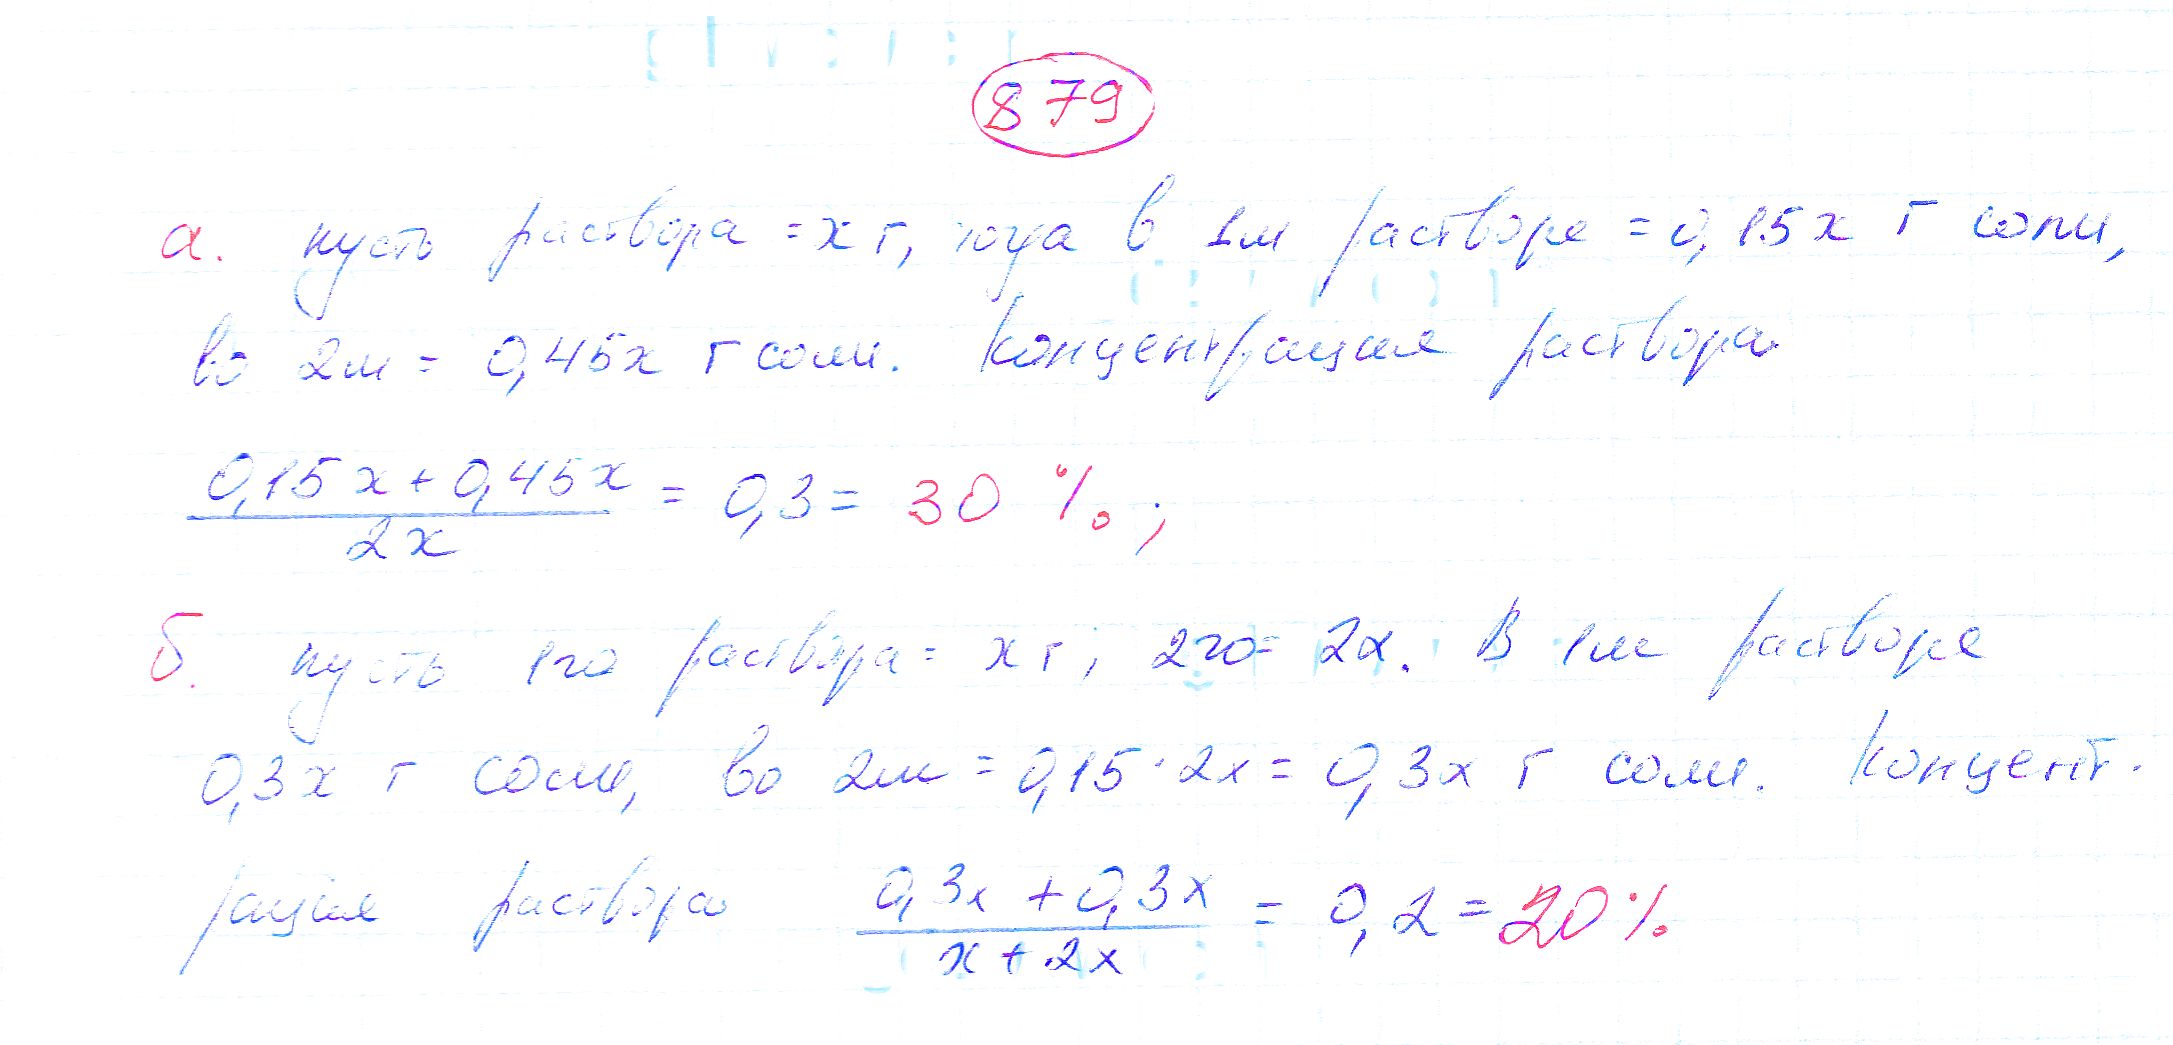 879
а. пусть раствора = x г, тогда в 1м растворе = 0,15x г соли,
во 2м = 0,45x г соли. Концентрация раствора
0,15x + 0,45x / 2x = 0,3 = 30 %;
б. пусть 1го раствора = x г, 2го = 2x. В 1м растворе
0,3x г соли, во 2м = 0,15 · 2x = 0,3x г соли. Концент-
рация раствора 0,3x + 0,3x / x + 2x = 0,2 = 20%